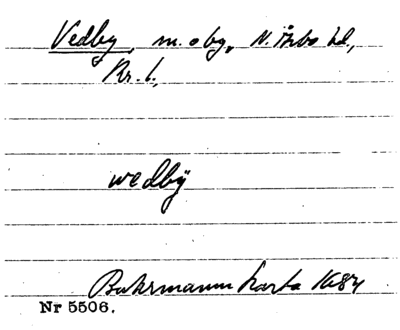 Vedby, m. o by, N. Åsbo hd,
Kr. l.,
wedbÿ
Buhrmanns karta 1684
Nr 5506.